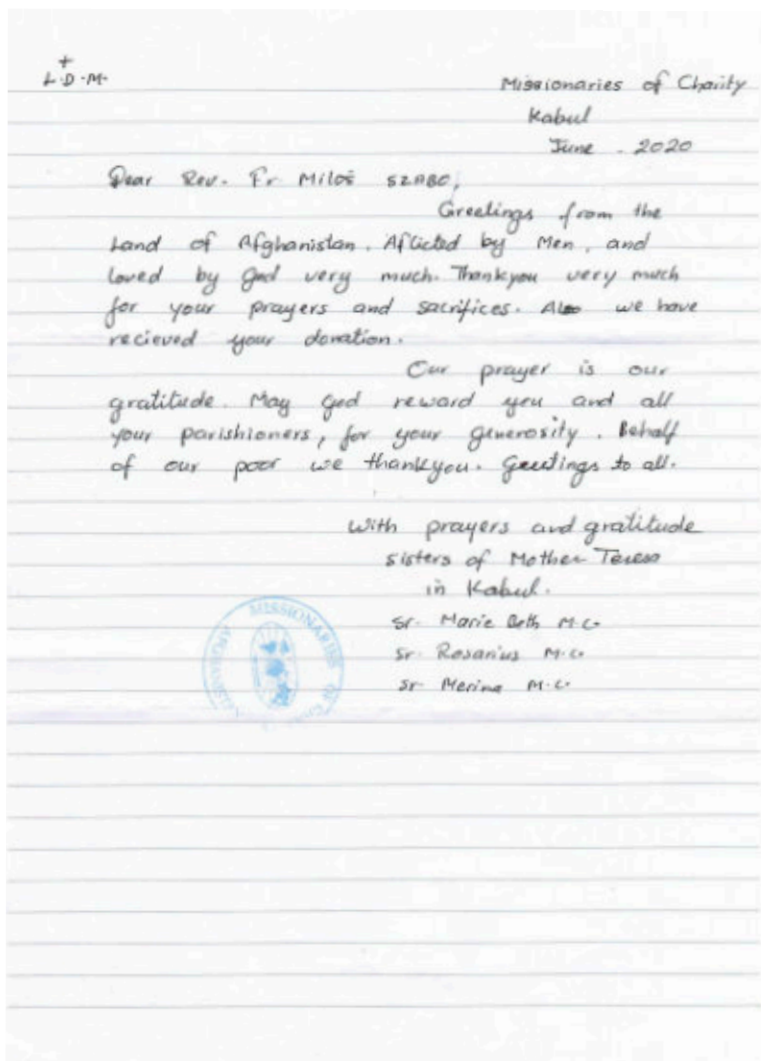 +
L.D.M.
Missionaries of Charity
Kabul
June . 2020
Dear Rev. Fr Miloš SZABO,
Greetings from the
Land of Afghanistan. Aflicted by Men, and
loved by God very much. Thankyou very much
for your prayers and sacrifices. Also we have
recieved your donation.
Our prayer is our
gratitude. May God reward you and all
your parishioners, for your generosity. Behalf
of our poor we thankyou. Greetings to all.
With prayers and gratitude
sisters of Mother Teresa
in Kabul.
Sr. Marie Beth M.C.
Sr. Rosarius M.C.
Sr Merina M.C.
MISSIONARIES OF